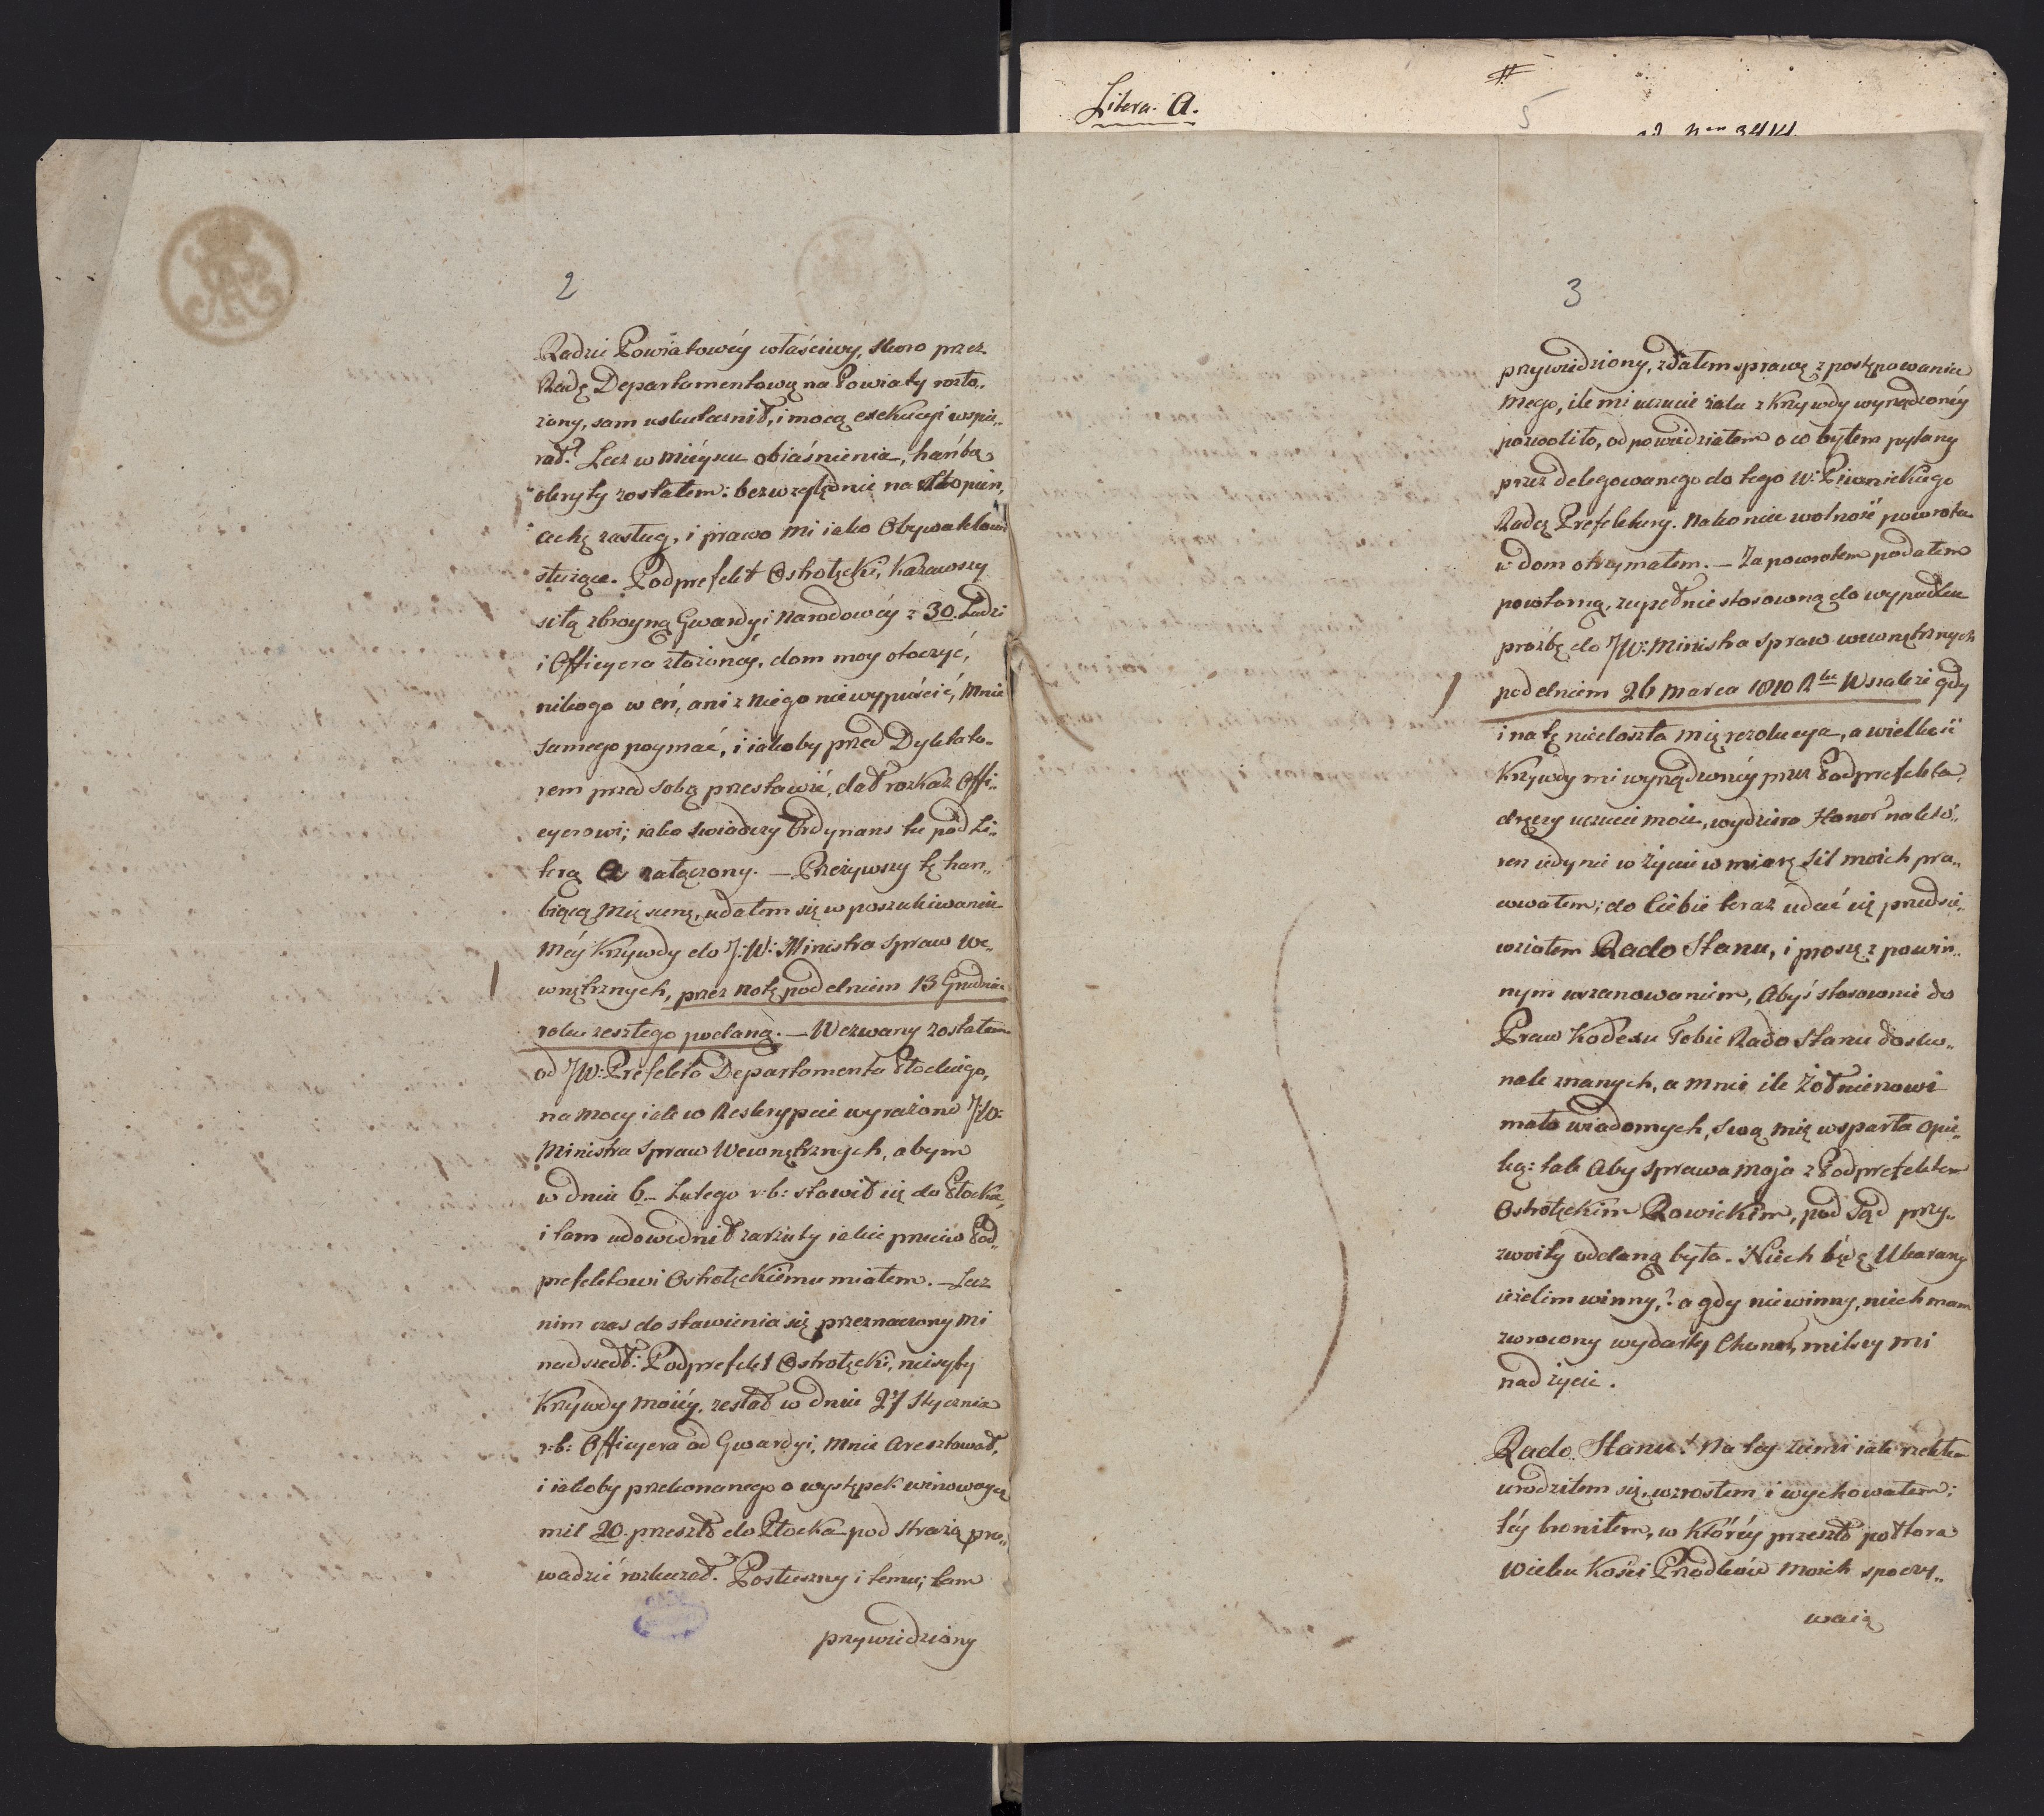 Litera. A.
#
5
2
Radzie Powiatowéy właściwy, skoro przez
Radę Departamentową na Powiaty rozło„
żony, sam uskutecznił, i mocą exekucyi wspie„
rał? Lecz w mieyscu obiaśnienia, hańbą
okryty zostałem: bezwzględnie na stopień,
cechę zasług, i prawo mi iako Obywatelowi
służące. Podprefekt Ostrołęcki, kazawszy
siłą zbroyną Gwardyi Narodowéy z 30. Ludzi
i Officyera złożonéy, dom moy otoczyć,
nikogo w eń, ani z niego niewypuścić, mnie
samego poymać, i iakoby przed Dyktato„
rem przed sobą przestawić, dał rozkaz Offi„
cyerowi; iako świadczy Ordynans tu pod Li„
terą A załączony. — Przeżywszy tę han„
biącą mię scenę, udałem się w poszukiwaniu
méy Krzywdy do J:W: Ministra Spraw We„
wnętrznych, przez notę pod dniem 13 Grudnia
roku zeszłego podaną. — Wezwany zostałem
od JW: Prefekta Departamentu Płockiego,
na mocy iak w Reskrypcie wyrażono J:W:
Ministra Spraw Wewnętrznych, abym
w dniu 6. Lutego r:b: stawił się do Płocka,
i tam udowodnił zarzuty iakie przeciw Pod„
prefektowi Ostrołęckiému miałem. — Lecz
nim czas do stawienia się przeznaczony mi
nadszedł: Podprefekt Ostrołęcki, niesyty
Krzywdy moiéy, zesłał w dniu 27 Stycznia
r:b: Officyera od Gwardyi, mnie aresztował,
i iakoby przekonanego o występek winowaycę
mil 20. przeszło do Płocka pod strażą pro„
wadzić rozkazał. Posłuszny i temu; tam
przywiedziony
3
przywiedziony, zdałem sprawę z postępowania
mego, ile mi uczucie żalu z Krzywdy wyrządzonéy
pozwoliło, odpowiedziałem o co byłem pytany
przez delegowanego do tego W: Piwnickiego
Radcę Prefektury. Nakoniec wolność powrotu
w dom otrzymałem. — Za powrotem podałem
powtorną, zupełnie stosowną do wypadku
prozbę do JW: Ministra Spraw wewnętrznych
pod dniem 26 Marca 1810 Rku Wszakże gdy
i na tę niedoszła mię rezolucya, a wielkość
Krzywdy mi wyrządzonéy przez Podprefekta,
dręczy uczucie moie, wydziera Honor na któ„
ren iedynie w życiu w miarę sił moich pra„
cowałem; do Ciebie teraz udać się przedsie„
wziąłem Rado Stanu, i proszę z powin„
nym uszanowaniem, Abyś stosownie do
Praw Kodexu Tobie Rado Stanu dosko„
nale znanych, a mnie ile Żołnierzowi
mało wiadomych, swą mię wsparła opie„
ką: tak aby sprawa moja z Podprefektem
Ostrołęckim Rowickim, pod Sąd przy„
zwoity oddaną była. Niech będę Ukarany
ieżelim winny,? a gdy niewinny, niech mam
zwrocony wydarty Chonor, milszy mi
nad życie.
Rado Stanu! Na tey ziemi iak rzekłem
urodziłem się, wzrosłem i wychowałem;
téy broniłem, w któréy przeszło półtora
Wieku Kości Przodków moich spoczy„
waią